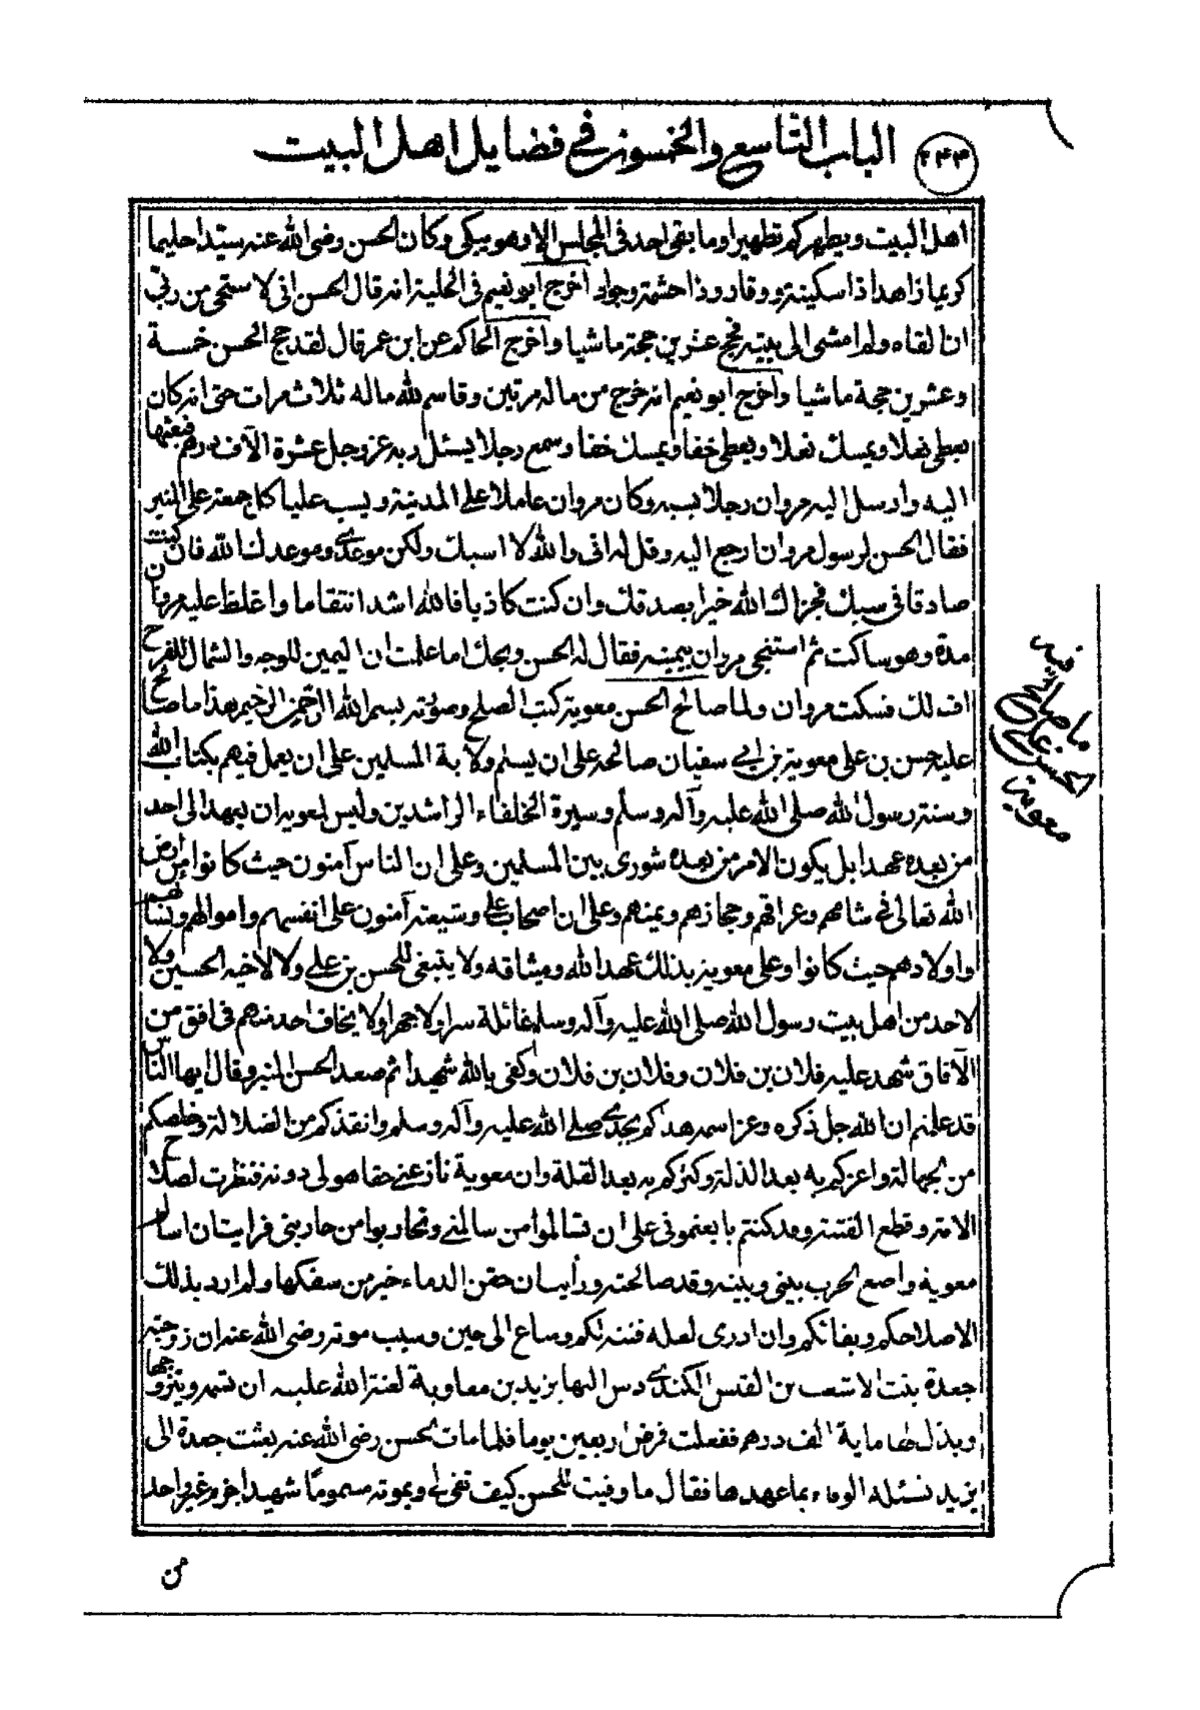 ٢٤٤
الباب التاسع والخمسون في فضايل اهل البيت
اهل البيت ويطهركم تطهيرا وما بقى احد فى المجلس الا وهو يبكى وكان الحسن رضى الله عنه سيّدا حليما
كريما زاهدا ذا سكينة ووقار وذا حشمة وجواد اخرج ابو نعيم فى الحلية انه قال الحسن انى لاستحى من ربّى
ان القاه ولم امشى الى بيته فحج عشرين حجة ماشيا واخرج الحاكم عن ابن عمر قال لقد حج الحسن خمسة
وعشرين حجة ماشيا واخرج ابو نعيم انه خرج من ماله مرتين وقاسم لله ماله ثلاث مرات حتى انه كان
يعطى نعلا ويمسك نعلا ويعطى خفا ويمسك خفا وسمع رجلا يسئل ربه عز وجل عشرة الآف درهم فبعثها
اليه وارسل اليه مروان رجلا يسبه وكان مروان عاملا على المدينة ويسب عليا كل جمعة على المنبر
فقال الحسن لرسول مروان ارجع اليه وقل له انى والله لا اسبك ولكن موعدى وموعدك الله فان كنت
صادقا فى سبك فجزاك الله خيرا بصدقك وان كنت كاذبا فالله اشد انتقاما واغلظ عليه مروان
مدة وهو ساكت ثم استنجى مروان بيمينه فقال له الحسن ويحك اما علمت ان اليمين للوجه والشمال للفرج
اف لك فسكت مروان ولما صالح الحسن معوية كتب الصلح وصورته بسم الله الرّحمن الرّحيم هذا ما صالح
عليه حسن بن على معوية بن ابى سفيان صالحه على ان يسلم ولاية المسلمين على ان يعمل فيهم بكتاب الله
وسنة رسول الله صلى الله عليه وآله وسلم وسيرة الخلفاء الراشدين وليس لمعوية ان يعهد الى احد
من بعده عهدا بل يكون الامر من بعده شورى بين المسلمين وعلى ان الناس آمنون حيث كانوا من ارض
الله تعالى فى شامهم وعراقهم وحجازهم ويمنهم وعلى ان اصحاب على وشيعته آمنون على انفسهم واموالهم ونسائهم
واولادهم حيث كانوا وعلى معوية بذلك عهد الله وميثاقه ولا يتبغى للحسن بن على ولا لاخيه الحسين ولا
لاحد من اهل بيت رسول الله صلى الله عليه وآله وسلم غائلة سرا ولا جهرا ولا يخاف احد منهم فى افق من
الآفاق شهد عليه فلان بن فلان وفلان بن فلان وكفى بالله شهيدا ثم صعد الحسن المنبر وقال ايها النّاس
قد علمتم ان الله جل ذكره وعز اسمه هداكم بجدى صلى الله عليه وآله وسلم وانقذكم من الضلالة وخلصكم
من الجهالة واعزكم به بعد الذلة وكثركم به بعد القلة وان معوية نازعنى حقا هو لى دونه فنظرت لصلاح
الامة وقطع الفتنة وقد كنتم بايعتمونى على ان تسالموا من سالمنى وتحاربوا من حاربنى فرايت ان اسالم
معوية واضع الحرب بينى وبينه وقد صالحته ورأيت ان حقن الدماء خير من سفكها ولم ارد بذلك
الا صلاحكم وبقائكم وان ادرى لعله فتنة لكم ومتاع الى حين وسبب موته رضى الله عنه ان زوجته
جعدة بنت الاشعث بن القيس الكندى دس اليها يزيد بن معاوية لعنة الله عليه ان تسمه ويتزوجها
وبذل لها ماية الف درهم ففعلت فمرض اربعين يوما فلما مات الحسن رضى الله عنه بعثت جعدة الى
يزيد تسئله الوفاء بما عهدها فقال ما وفيت للحسن كيف تفى لى وبموته مسمومًا شهيدا جزم غير واحد
فيه
ما صالح
الحسن على
معوية
من